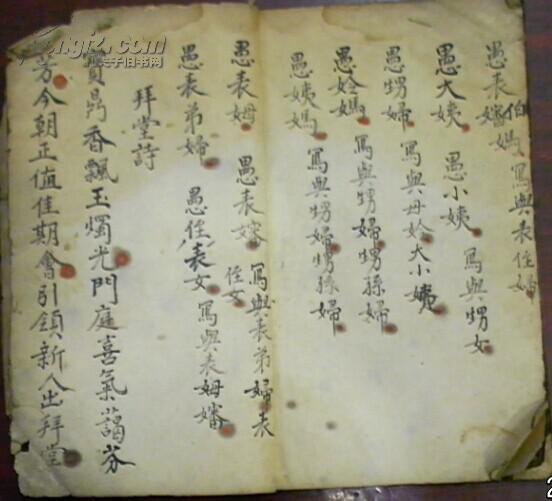 愚表嬸伯媽寫與表侄婦
愚大姨 愚小姨 寫與甥女
愚甥婦 寫與母妗大小姨
愚妗媽 寫與甥婦甥孫婦
愚姨媽 寫與甥婦甥孫婦
愚表姆 愚表嬸 寫與表弟婦表侄女
愚表弟婦 愚侄表女 寫與表姆嬸
拜堂詩
寶鼎香飄玉燭光門庭喜氣藹芬
芳今朝正值佳期會引領新人出拜堂